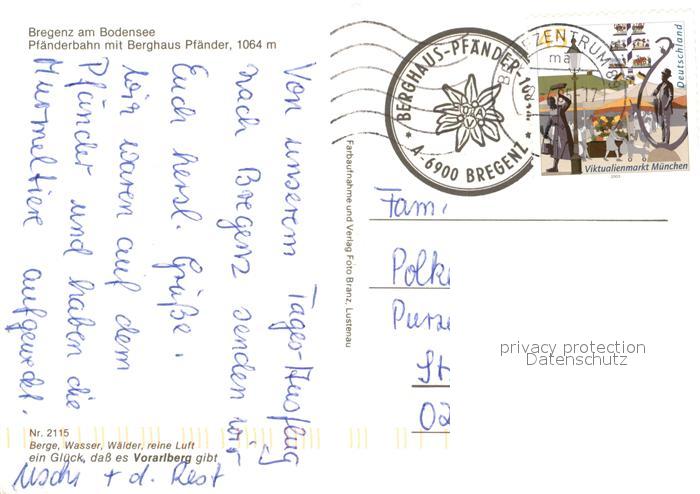 Bregenz am Bodensee
Pfänderbahn mit Berghaus Pfänder, 1064 m
Von unserem Tages-Ausflug
nach Bregenz senden wir
Euch herzl. Grüße.
Wir waren auf dem
Pfänder und haben die
Murmeltiere aufgeweckt.
Uschi + d. Rest
Nr. 2115
Berge, Wasser, Wälder, reine Luft
ein Glück, daß es Vorarlberg gibt
Farbaufnahme und Verlag Foto Branz, Lustenau
BERGHAUS-PFÄNDER-1064m
A-6900 BREGENZ
ZENTRUM 8
Deutschland
Viktualienmarkt München
2003
Fam.
Polk
St
02
privacy protection
Datenschutz